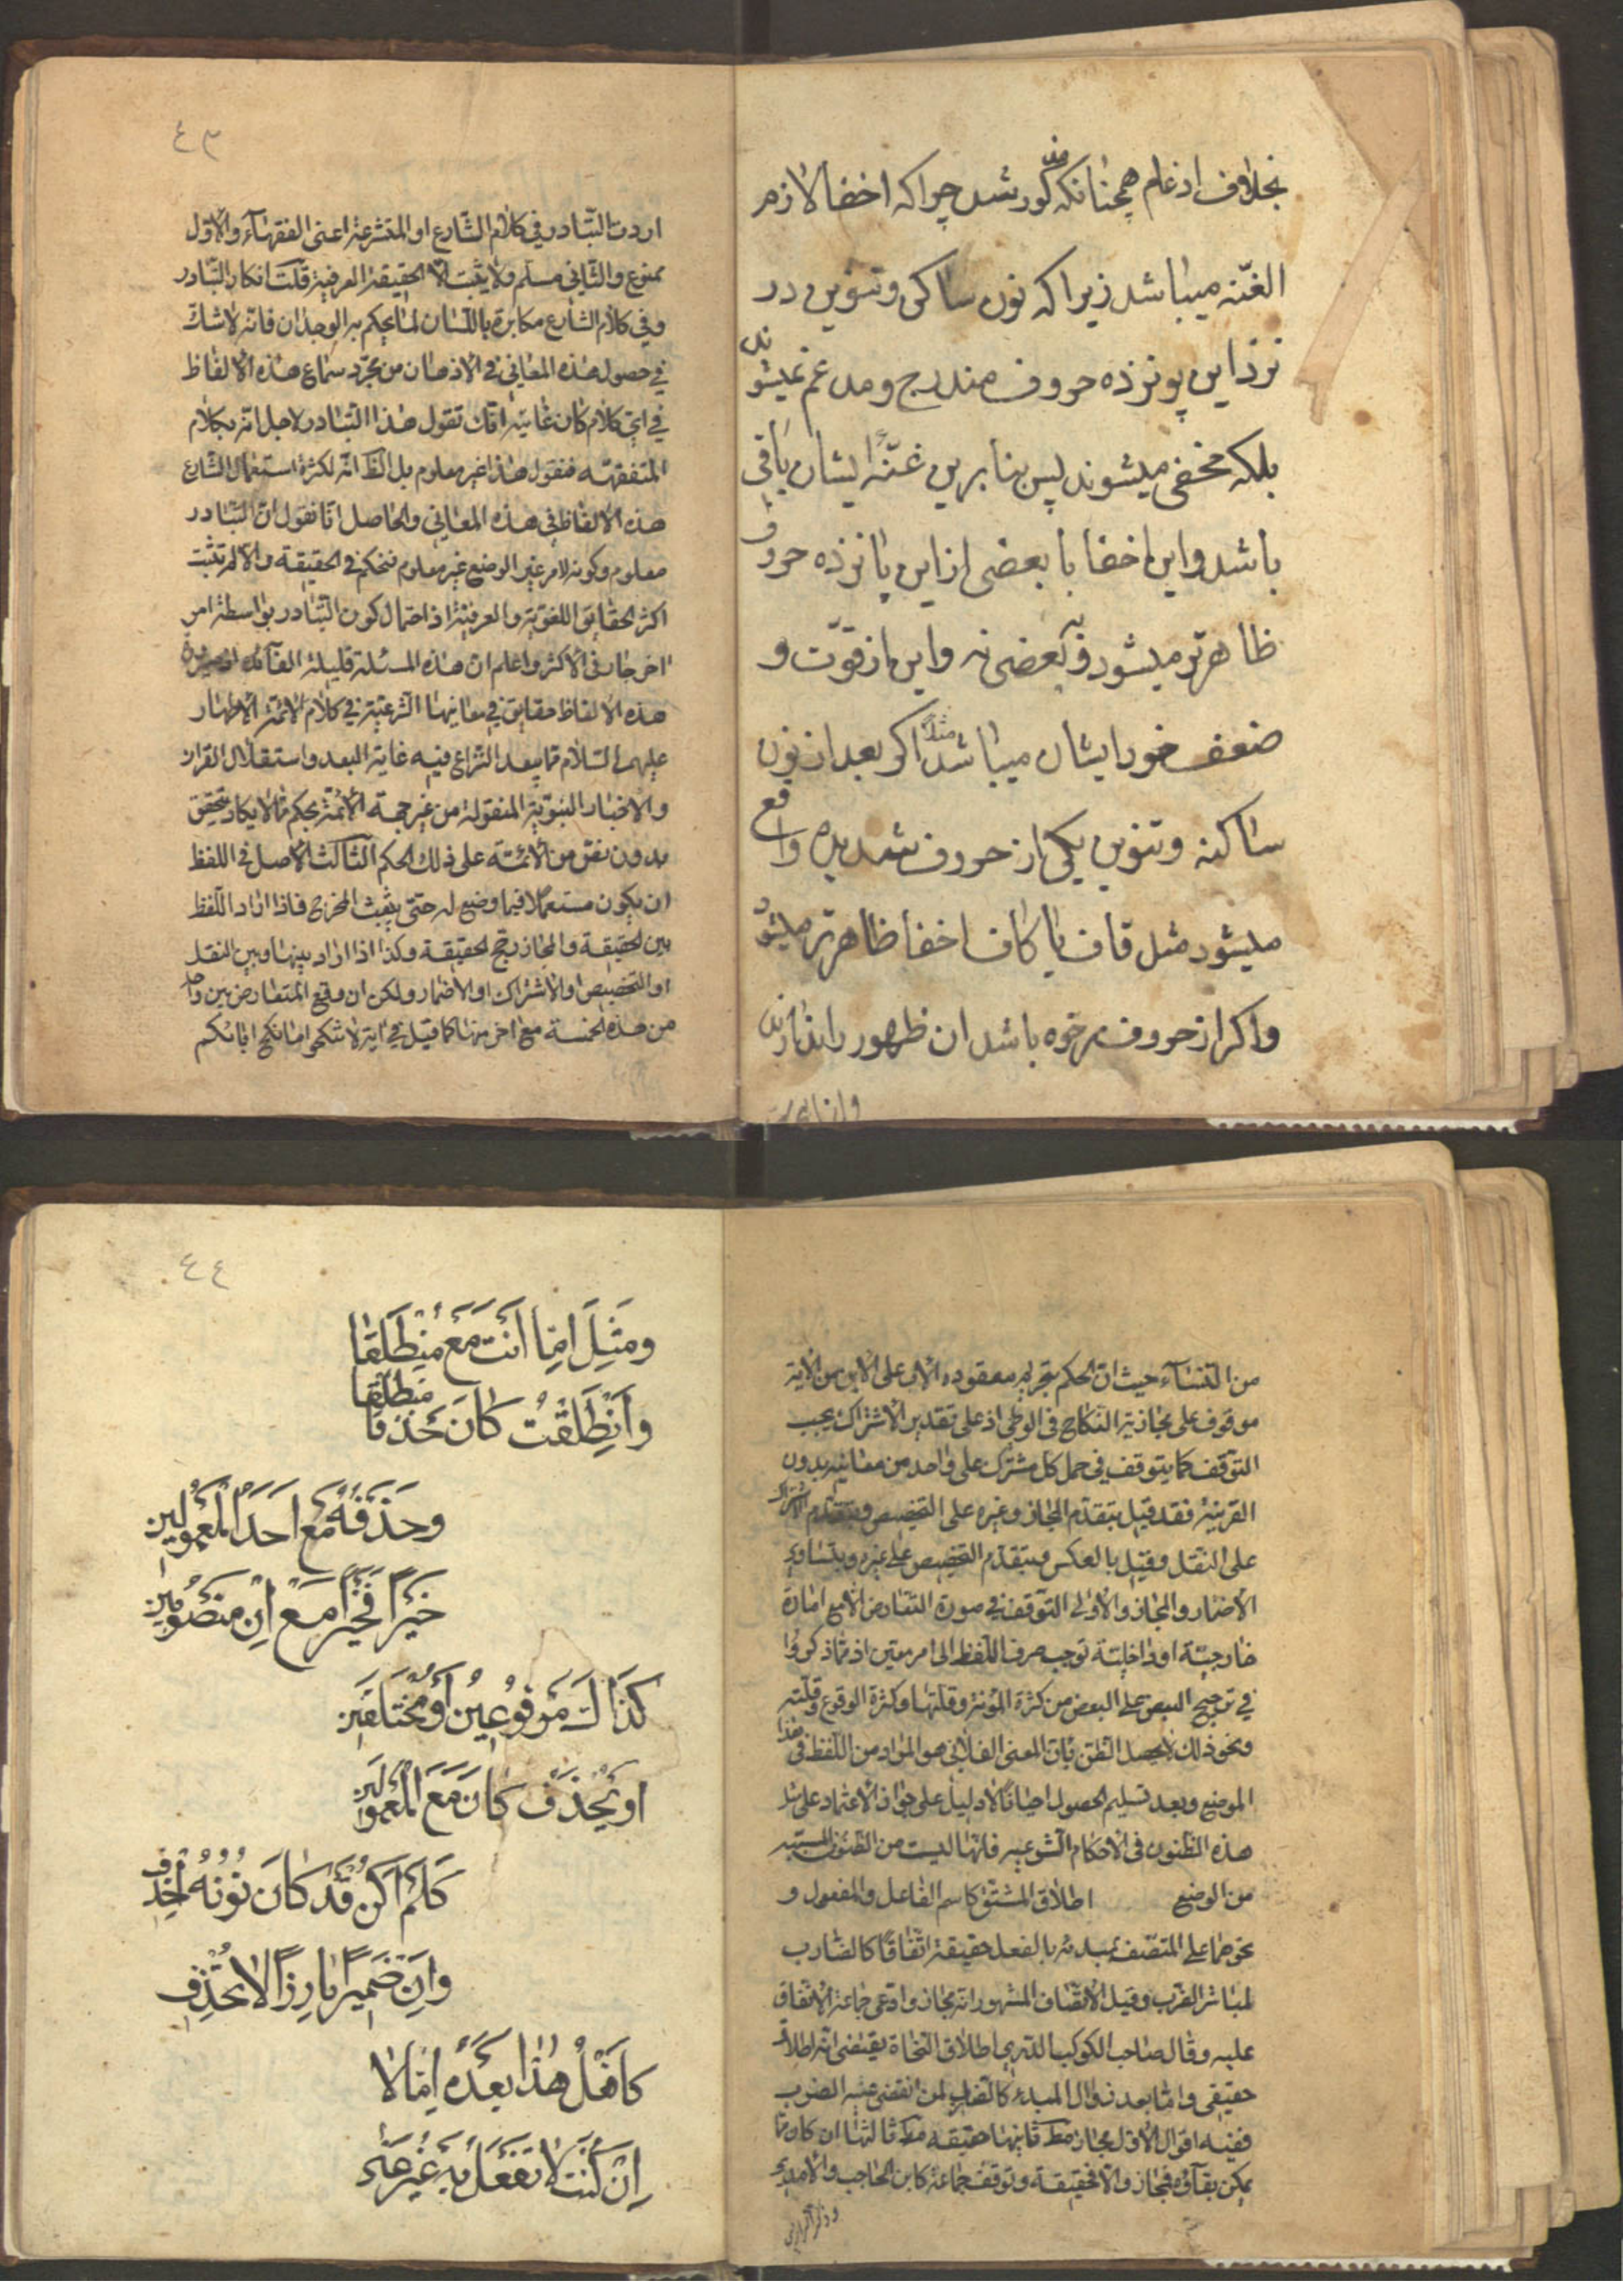 بخلاف ادغام همچنانکه مذکور شد چرا که اخفا لازم
الغنّه میباشد زیرا که نون ساکن و تنوین در
نزد این پونزده حروف مندرج و مدغم نمیشوند
بلکه مخفی میشوند پس بنا برین غنّهٔ ایشان باقی
باشد و این اخفا با بعضی از این پانزده حروف
ظاهرتر میشود و به بعضی نه و این از قوّت و
ضعف خود ایشان میباشد مثلاً اکر بعد از نون
ساکنه و تنوین یکی از حروف شدیده واقع
میشود مثل قاف یا کاف اخفا ظاهرتر میشود
و اکر از حروف رخوه باشد ان ظهور را ندارند
٤٣
اردت التّبادر فی کلام الشّارع او المتشرعة اعنی الفقهآء و الاوّل
ممنوع و الثّانی مسلم ولا یثبت الّا الحقیقة العرفیة قلت انکار التّبادر
و فی کلام الشّارع مکابرة باللّسان لما یحکم به الوجدان فانّه لا شکّ
فی حصول هذه المعانی فی الاذهان من مجرّد سماع هذه الالفاظ
فی ایّ کلام کان غایته انّک تقول هذا التّبادر لاجل انّه بکلام
المتفقهة فنقول هذا غیر معلوم بل الظّ انّه لکثرة استعمال الشّارع
هذه الالفاظ فی هذه المعانی و الحاصل انّا نقول انّ التّبادر
معلوم و کونه لامر غیر الوضع غیر معلوم فنحکم فی الحقیقة و الّا لم تثبت
اکثر الحقایق اللغویّة و العرفیّة اذ احتمال کون التّبادر بواسطة امر
اخر جار فی الاکثر و اعلم ان هذه المسئلة قلیلة الفآئدة
هذه الالفاظ حقایق فی معانیها الشّرعیّة فی کلام الائمّة الاطهار
علیهم السّلام ممّا یبعد النّزاع فیه غایة البعد و استقلال القران
و الاخبار النبویّة المنقولة من غیر جهة الائمّة بحکم ممّا لا یکاد یتحقق
بدون نصّ من الائمّة علی ذلک الحکم الثّالث الاصل فی اللفظ
ان یکون مستعملا فیما وضع له حتّی یثبت المخرج فاذا اراد اللّفظ
بین الحقیقة و المجاز رجّح الحقیقة و کذا اذا اراد بینها و بین النقل
او التّخصیص او الاشتراک او الاضمار و لکن ان وقع التعارض بین واحد
من هذه الخمسة مع اخر منها کما قیل فی ایة لا تنکحوا ما نکح ابائکم
من النّسآء حیث انّ الحکم بتحریم معقوده الاب علی الابن من الایة
موقوف علی مجازیة النّکاح فی الوطی اذ علی تقدیر الاشتراک یجب
التّوقف کما یتوقف فی حمل کل مشترک علی واحد من معانیه بدون
القرینة فقد قیل بتقدّم المجاز و غیره علی التخصیص و بتقدّم الاشتراک
علی النّقل و قیل بالعکس و بتقدّم التخصیص علی غیره و بتساوی
الاضمار و المجاز و الاولی التّوقف فی صورة التّعارض الّا مع امارة
خارجیّة او داخلیّة توجب صرف اللّفظ الی امر معیّن اذ ممّا ذکروا
فی ترجیح البعض علی البعض من کثرة المؤنة و قلتها و کثرة الوقوع و قلّته
و نحو ذلک لا یحصل الظّن بانّ المعنی الفلانی هو المراد من اللّفظ فی هذا
الموضع و بعد تسلیم الحصول احیانا لا دلیل علی جواز الاعتماد علی مثل
هذه الظّنون فی الاحکام الشّرعیه فانّها لیست من الظّنون المسببه
من الوضع اطلاق المشتق کاسم الفاعل و المفعول و
نحوهما علی المتصّف بمبدئه بالفعل حقیقة اتّفاقا کالضارب
لمباشر الضرب و قبل الاتّصاف المشهور انّه مجاز و ادّعی جماعة الاتّفاق
علیه و قال صاحب الکوکب الدّری اطلاق النّحاة یقتضی انّه اطلاق
حقیقی و امّا بعد زوال المبدء کالضارب لمن انقضی عنه الضرب
ففیه اقوال الاوّل مجاز مط ثانیها حقیقة مط ثالثها ان کان ممّا
یمکن بقآؤه فمجاز و الّا فحقیقة و توقف جماعة کابن الحاجب و الامدی
٤٤
وَمَثِلَ امّا أنتَ مَع مُنطَلِقا
منطلقا
وانطلقتُ کانَ حذفا
وحَذفَهُ مَع احَد المَعمُولَین
خَیرًا فَخَیرًا مَع ان منصُوبَین
کَذَاکَ مَرفُوعَین أو مُختَلفَین
او یُحذَف کانَ مَعَ المَعمولَین
کَلَم اکُن قَد کانَ نُونُهُ حُذِف
وَاِن ضَمیرًا بارزًا لا یُحذف
کافعَل هذا بعدَه امّا لا
اِن کُنتَ لا تَفعَل به غَیرَهُ